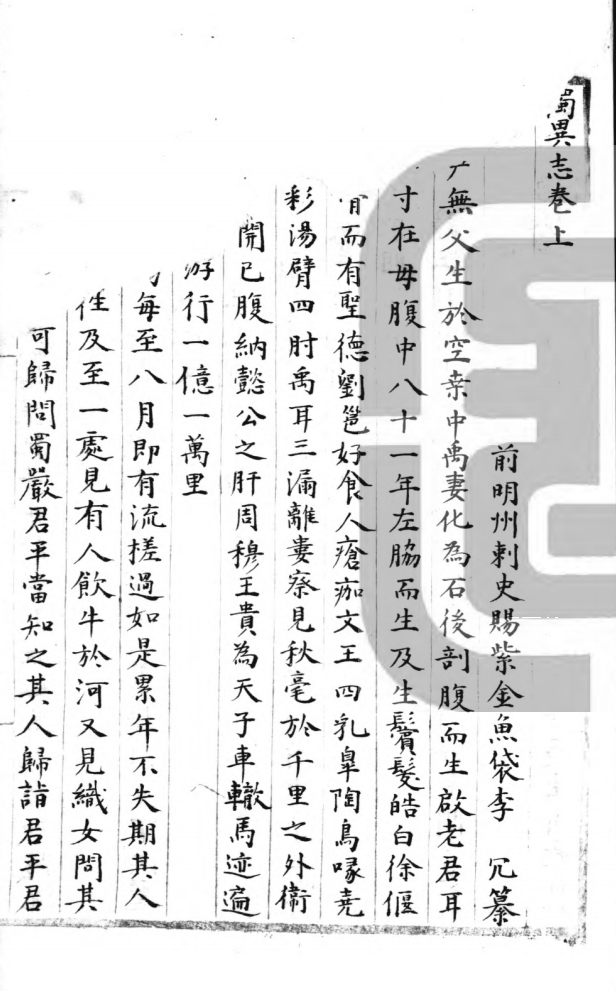 獨異志卷上
前明州刺史賜紫金魚袋李 冗纂
無父生於空桒中禹妻化為石後剖腹而生啟老君耳
寸在母腹中八十一年左脇而生及生鬢髮皓白徐偃
而有聖德劉邕好食人瘡痂文王四乳臯陶鳥喙堯
彩湯臂四肘禹耳三漏離婁察見秋毫於千里之外衛
開已腹納懿公之肝周穆王貴為天子車轍馬迹遍
游行一億一萬里
每至八月即有流槎過如是累年不失期其人
往及至一處見有人飲牛於河又見織女問其
可歸問蜀嚴君平當知之其人歸詣君平君